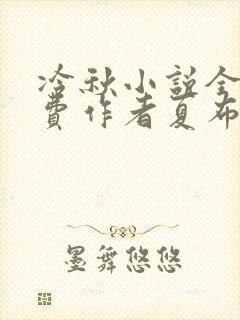 冷秋小说全
费作者夏布
墨舞悠悠